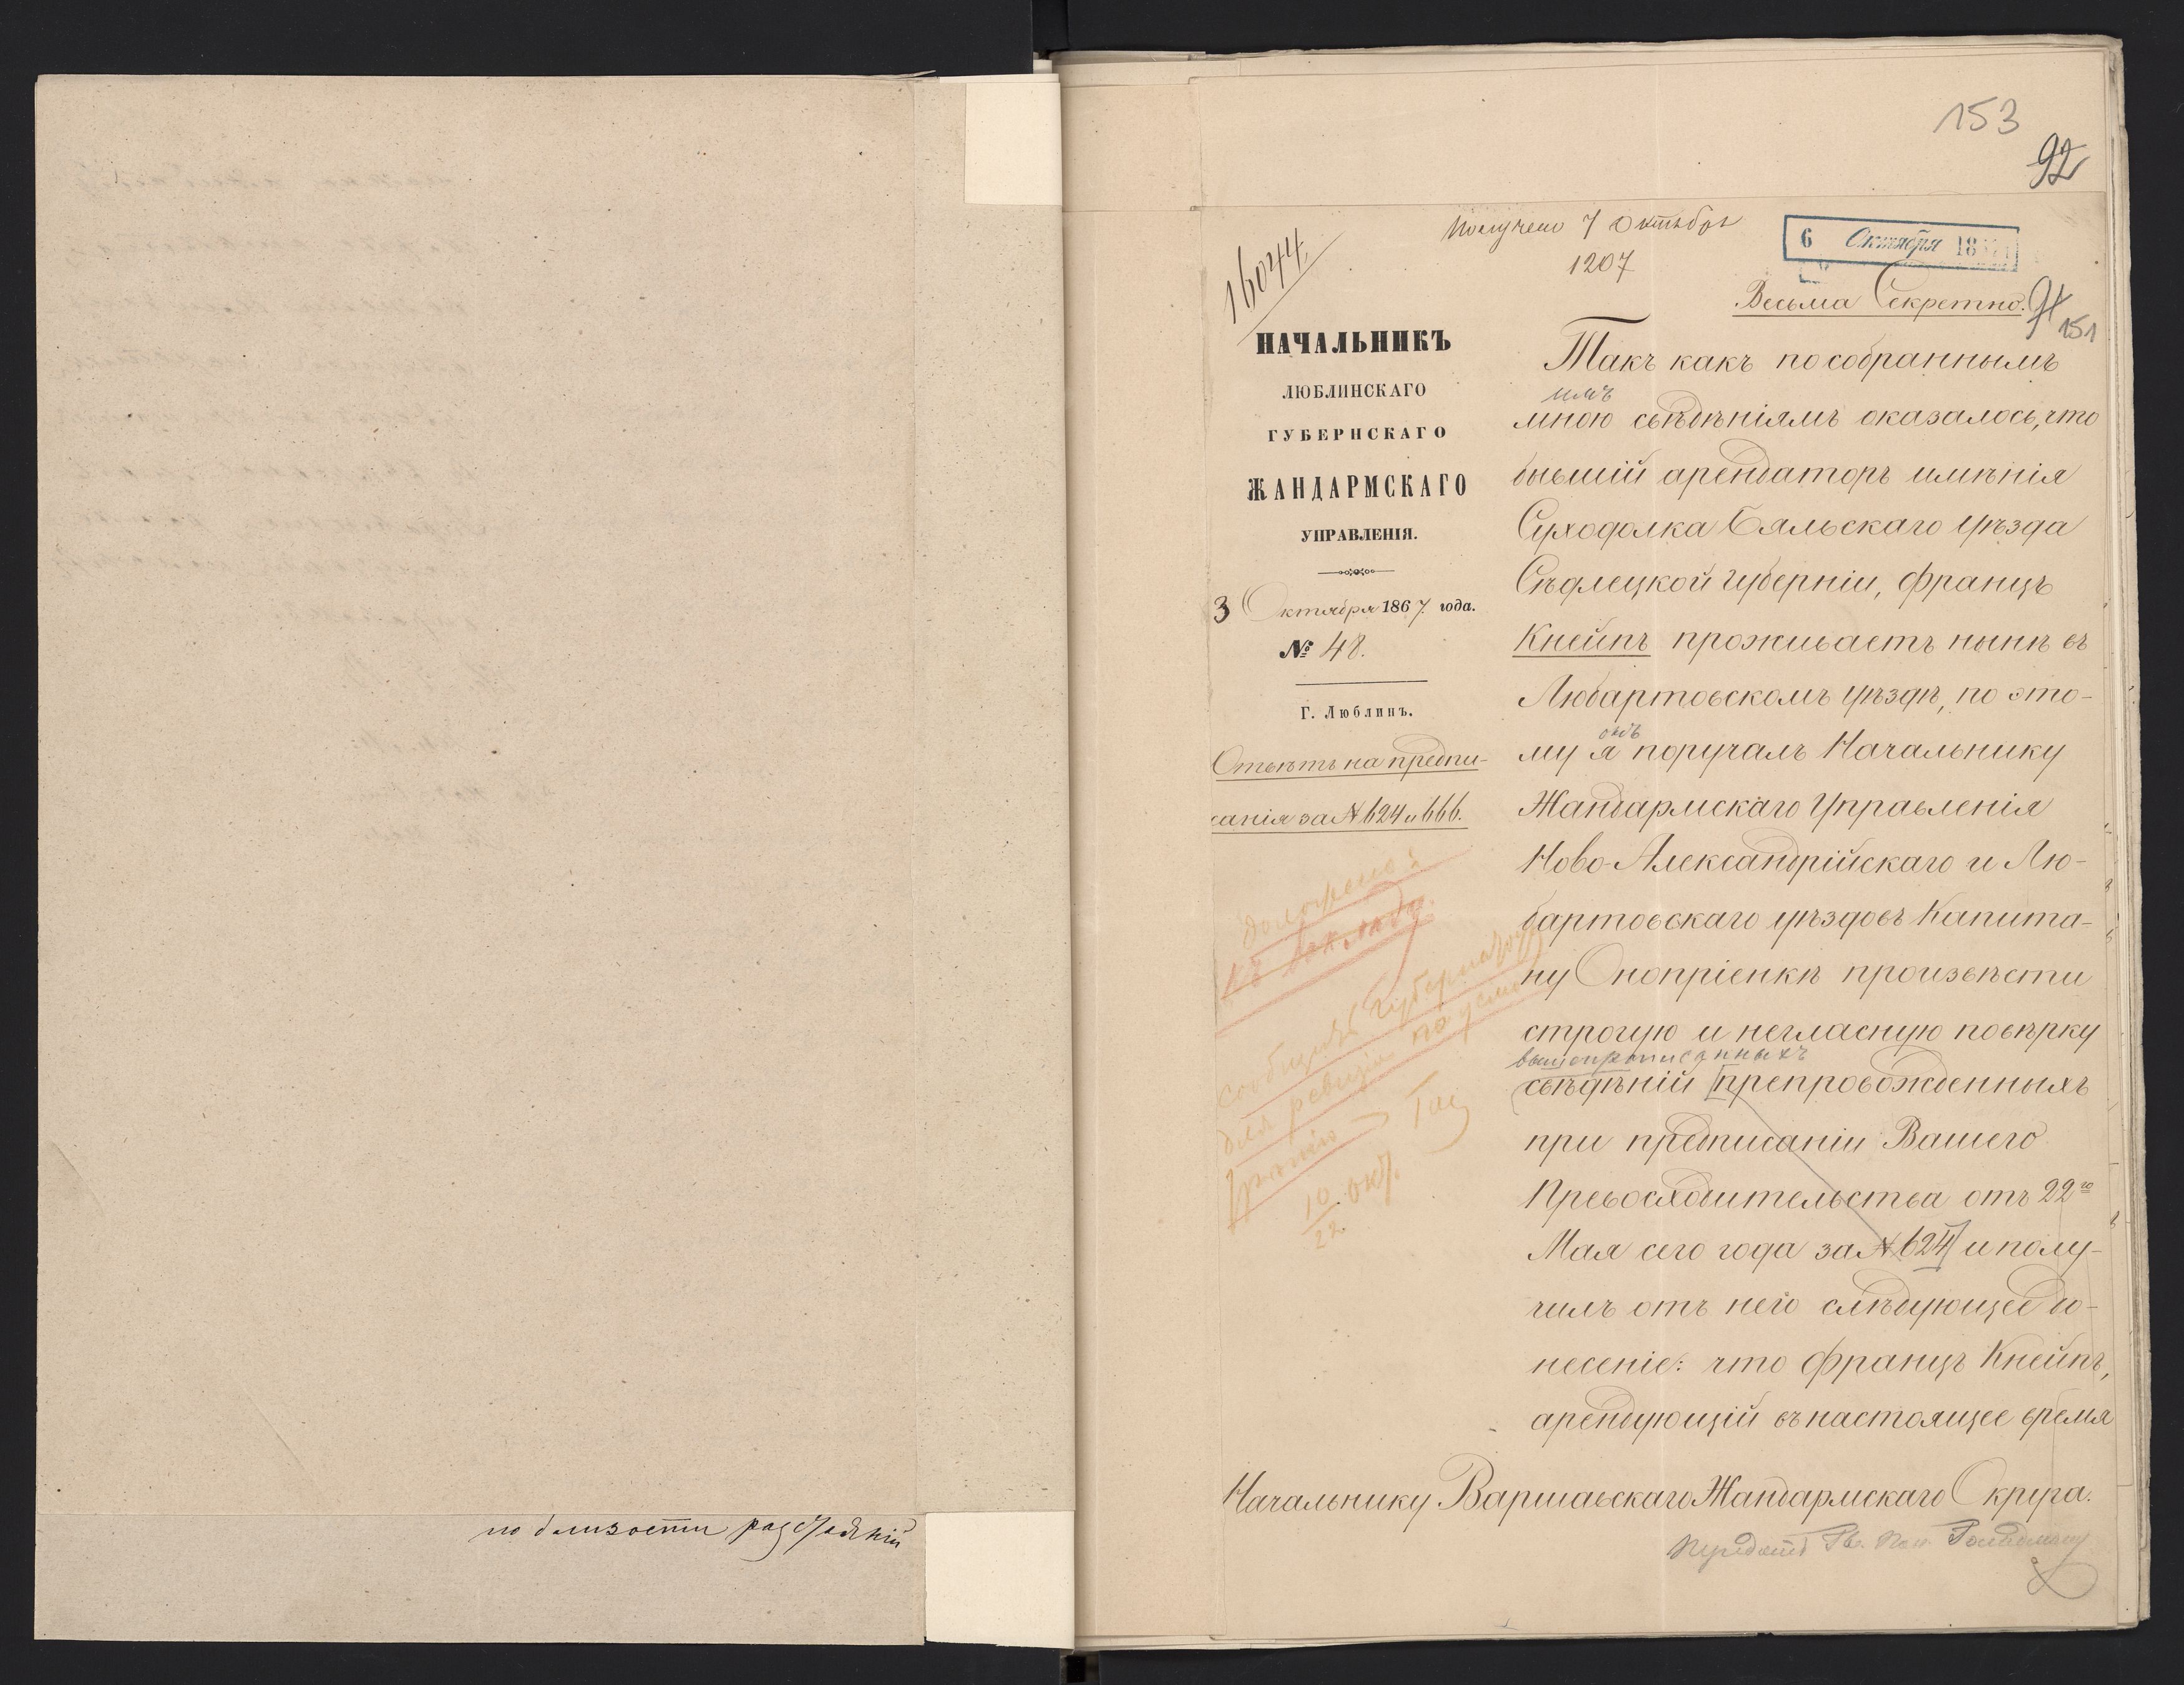 по близости разстояній
153
92
Получено 7 Октября
1207
16044.
6 Октября 18
Весьма Секретно.
91
151
НАЧАЛЬНИКЪ
ЛЮБЛИНСКАГО
ГУБЕРНСКАГО
ЖАНДАРМСКАГО
УПРАВЛЕНІЯ.
3 Октября 1867 года.
№ 48.
Г. Люблинъ.
Отвѣтъ на предпи-
санія за № 624 и 666.
доложено:
къ докладу.
Сообщить Губернатору
для ревизіи по сему
10 окт.
22
Такъ какъ по собраннымъ
имъ
мною свѣдѣніямъ оказалось, что
бывшій арендаторъ имѣнія
Суходолка Бяльскаго уѣзда
Сѣдлецкой губерніи, Францъ
Кнейпъ проживаетъ нынѣ въ
Любартовскомъ уѣздѣ, по это-
онъ
му я поручалъ Начальнику
Жандармскаго Управленія
Ново-Александрійскаго и Лю-
бартовскаго уѣздовъ Капита-
ну Оноприенкѣ произвѣсти
строгую и негласную повѣрку
вышеописанныхъ
свѣдѣній [препровожденныхъ
при предписаніи Вашего
Превосходительства отъ 22го
Мая сего года за № 624] и полу-
чилъ отъ него слѣдующее до-
несеніе: что Францъ Кнейпъ,
арендующій въ настоящее время
Начальнику Варшавскаго Жандармскаго Округа.